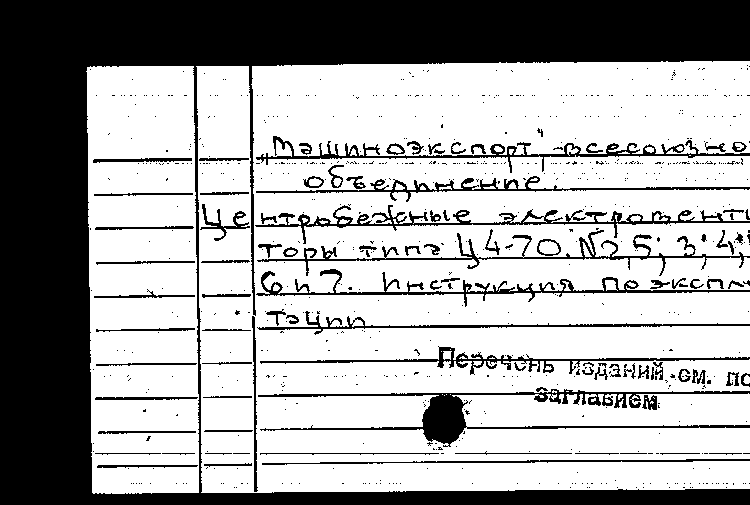 „Машиноэкспорт", всесоюзно
объединение.
Центробежные электровенти
торы типа Ц4-70. №2,5; 3; 4;
6 и 7. Инструкция по экспл
тации
Перечень изданий см. по
заглавием